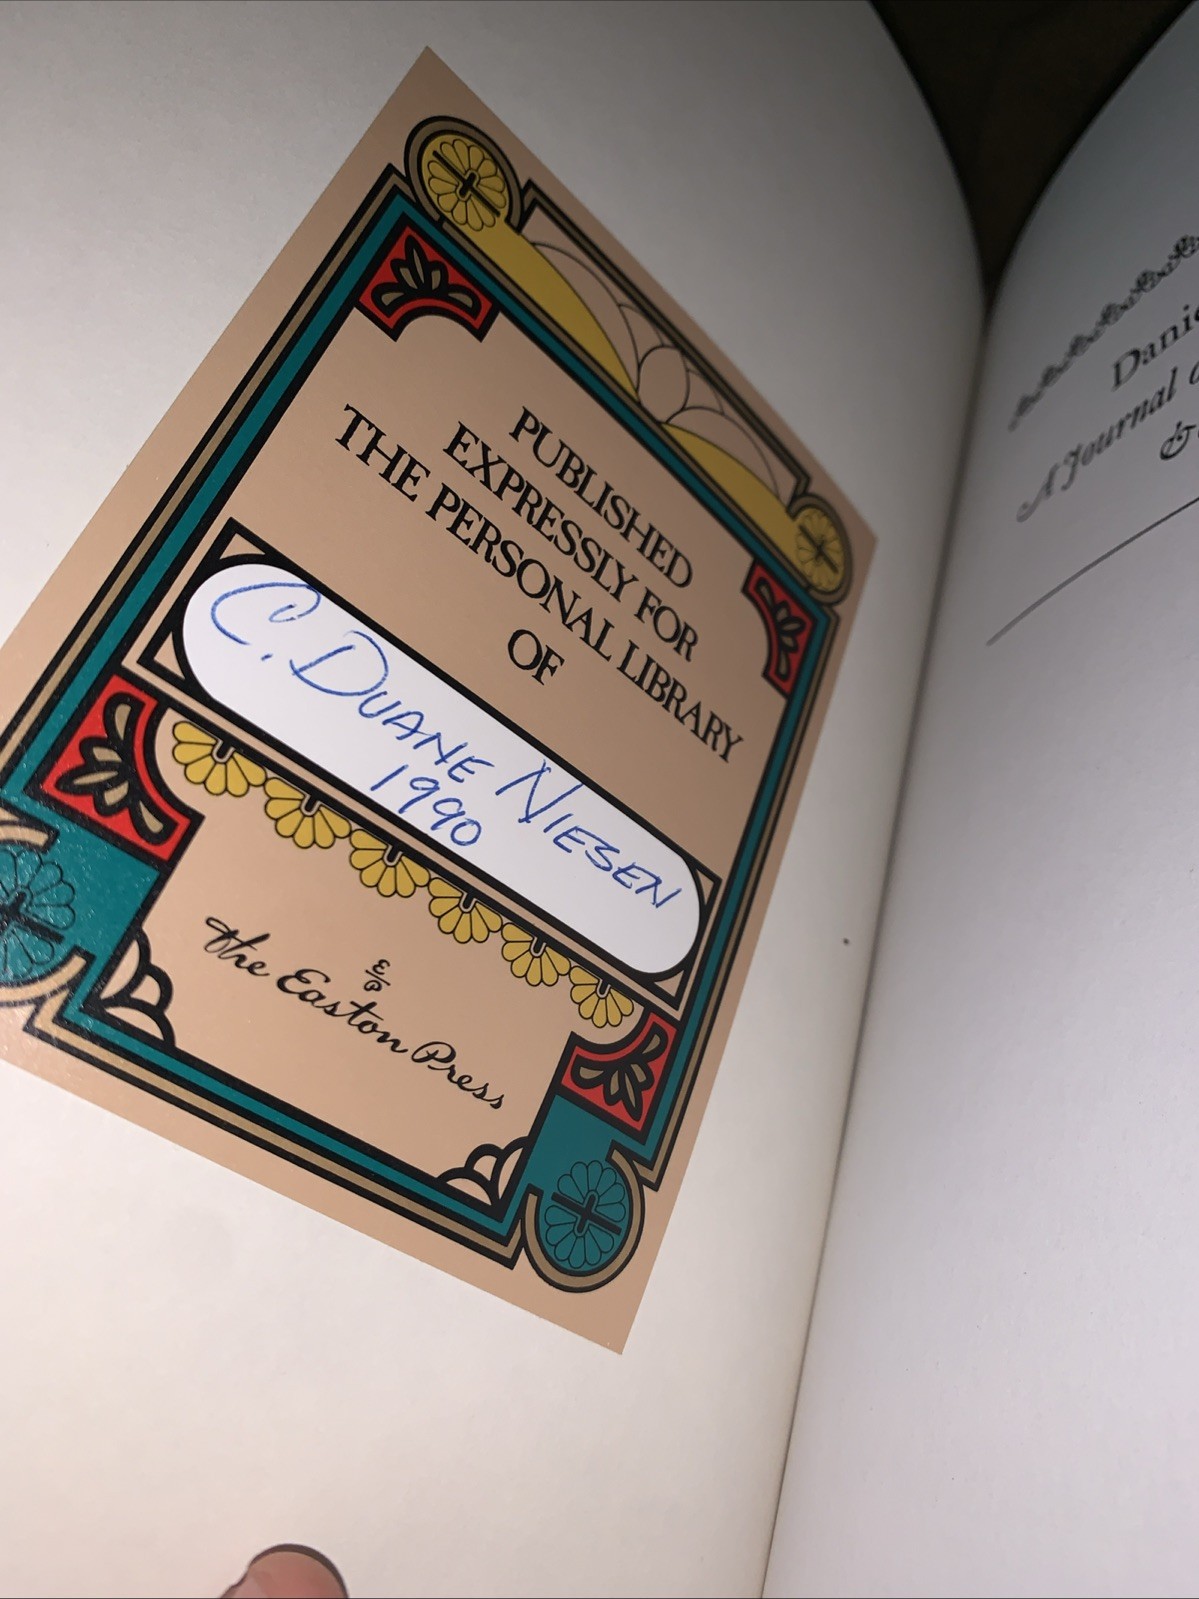 PUBLISHED
EXPRESSLY FOR
THE PERSONAL LIBRARY
OF
C. DUANE NIESEN
1990
E/P
The Easton Press
A Journal
&